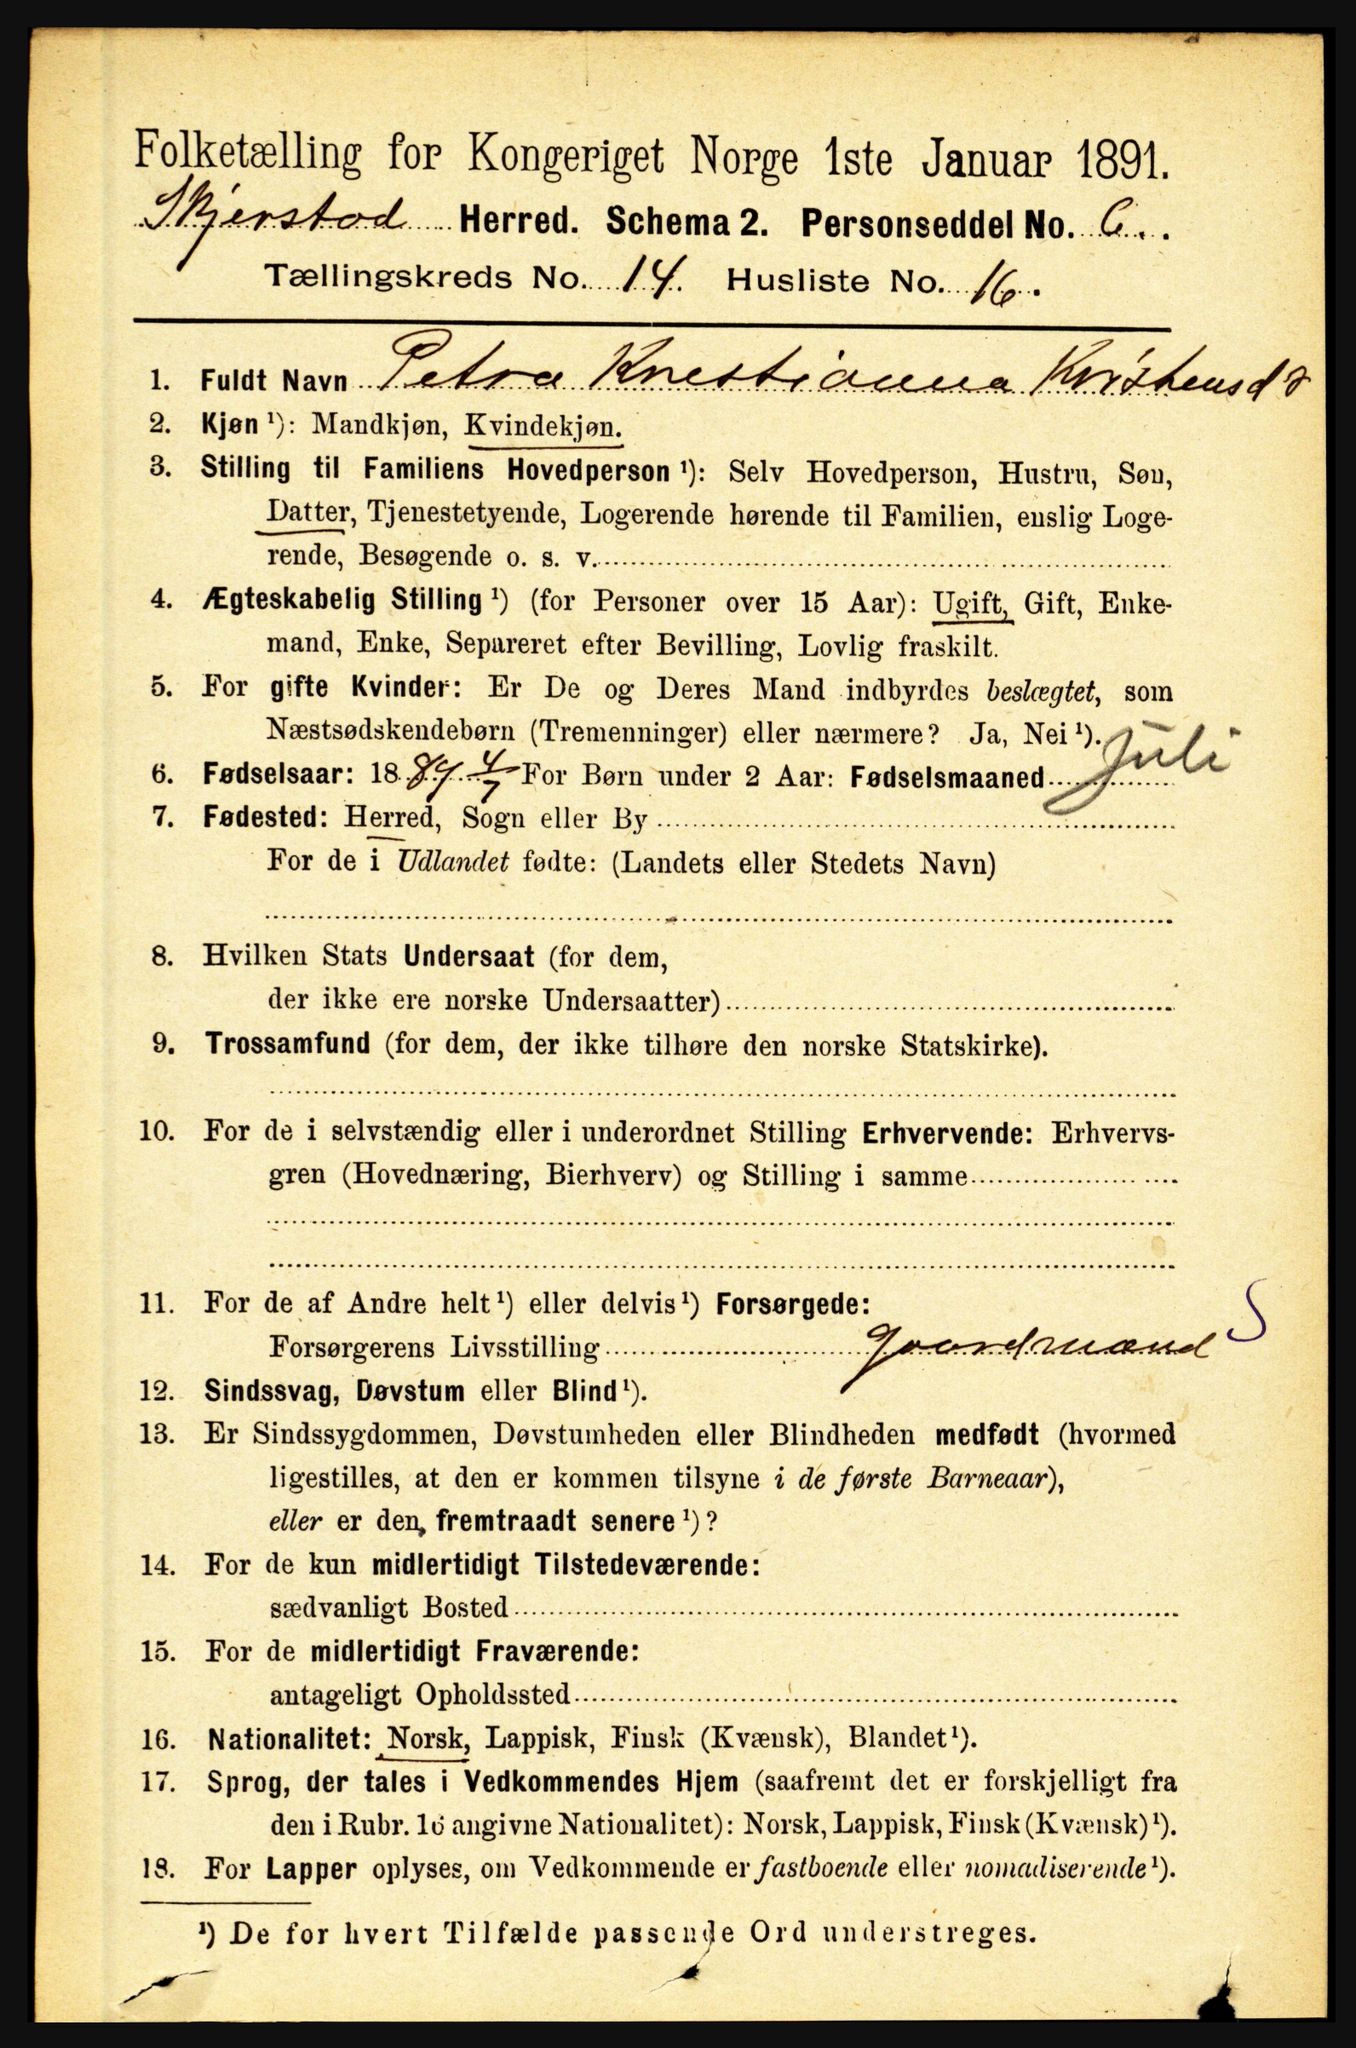 Folketælling for Kongeriget Norge 1ste Januar 1891.
Skjerstad Herred. Schema 2. Personseddel No. 6.
Tællingskreds No. 14. Husliste No. 16.
1. Fuldt Navn Petra Krestianna Kristensd
2. Kjøn ¹): Mandkjøn, Kvindekjøn.
3. Stilling til Familiens Hovedperson ¹): Selv Hovedperson, Hustru, Søn,
Datter, Tjenestetyende, Logerende hørende til Familien, enslig Loge-
rende, Besøgende o. s. v.
4. Ægteskabelig Stilling ¹) (for Personer over 15 Aar): Ugift, Gift, Enke-
mand, Enke, Separeret efter Bevilling, Lovlig fraskilt.
5. For gifte Kvinder: Er De og Deres Mand indbyrdes beslægtet, som
Næstsødskendebørn (Tremenninger) eller nærmere? Ja, Nei ¹).
6. Fødselsaar: 1889 4/7 For Børn under 2 Aar: Fødselsmaaned Juli
7. Fødested: Herred, Sogn eller By
For de i Udlandet fødte: (Landets eller Stedets Navn)
8. Hvilken Stats Undersaat (for dem,
der ikke ere norske Undersaatter)
9. Trossamfund (for dem, der ikke tilhøre den norske Statskirke).
10. For de i selvstændig eller i underordnet Stilling Erhvervende: Erhvervs-
gren (Hovednæring, Bierhverv) og Stilling i samme
11. For de af Andre helt ¹) eller delvis ¹) Forsørgede:
Forsørgerens Livsstilling Gaardmand S
12. Sindssvag, Døvstum eller Blind ¹).
13. Er Sindssygdommen, Døvstumheden eller Blindheden medfødt (hvormed
ligestilles, at den er kommen tilsyne i de første Barneaar),
eller er den fremtraadt senere ¹)?
14. For de kun midlertidigt Tilstedeværende:
sædvanligt Bosted
15. For de midlertidigt Fraværende:
antageligt Opholdssted
16. Nationalitet: Norsk, Lappisk, Finsk (Kvænsk), Blandet ¹).
17. Sprog, der tales i Vedkommendes Hjem (saafremt det er forskjelligt fra
den i Rubr. 16 angivne Nationalitet): Norsk, Lappisk, Finsk (Kvænsk) ¹).
18. For Lapper oplyses, om Vedkommende er fastboende eller nomadiserende ¹).
¹) De for hvert Tilfælde passende Ord understreges.